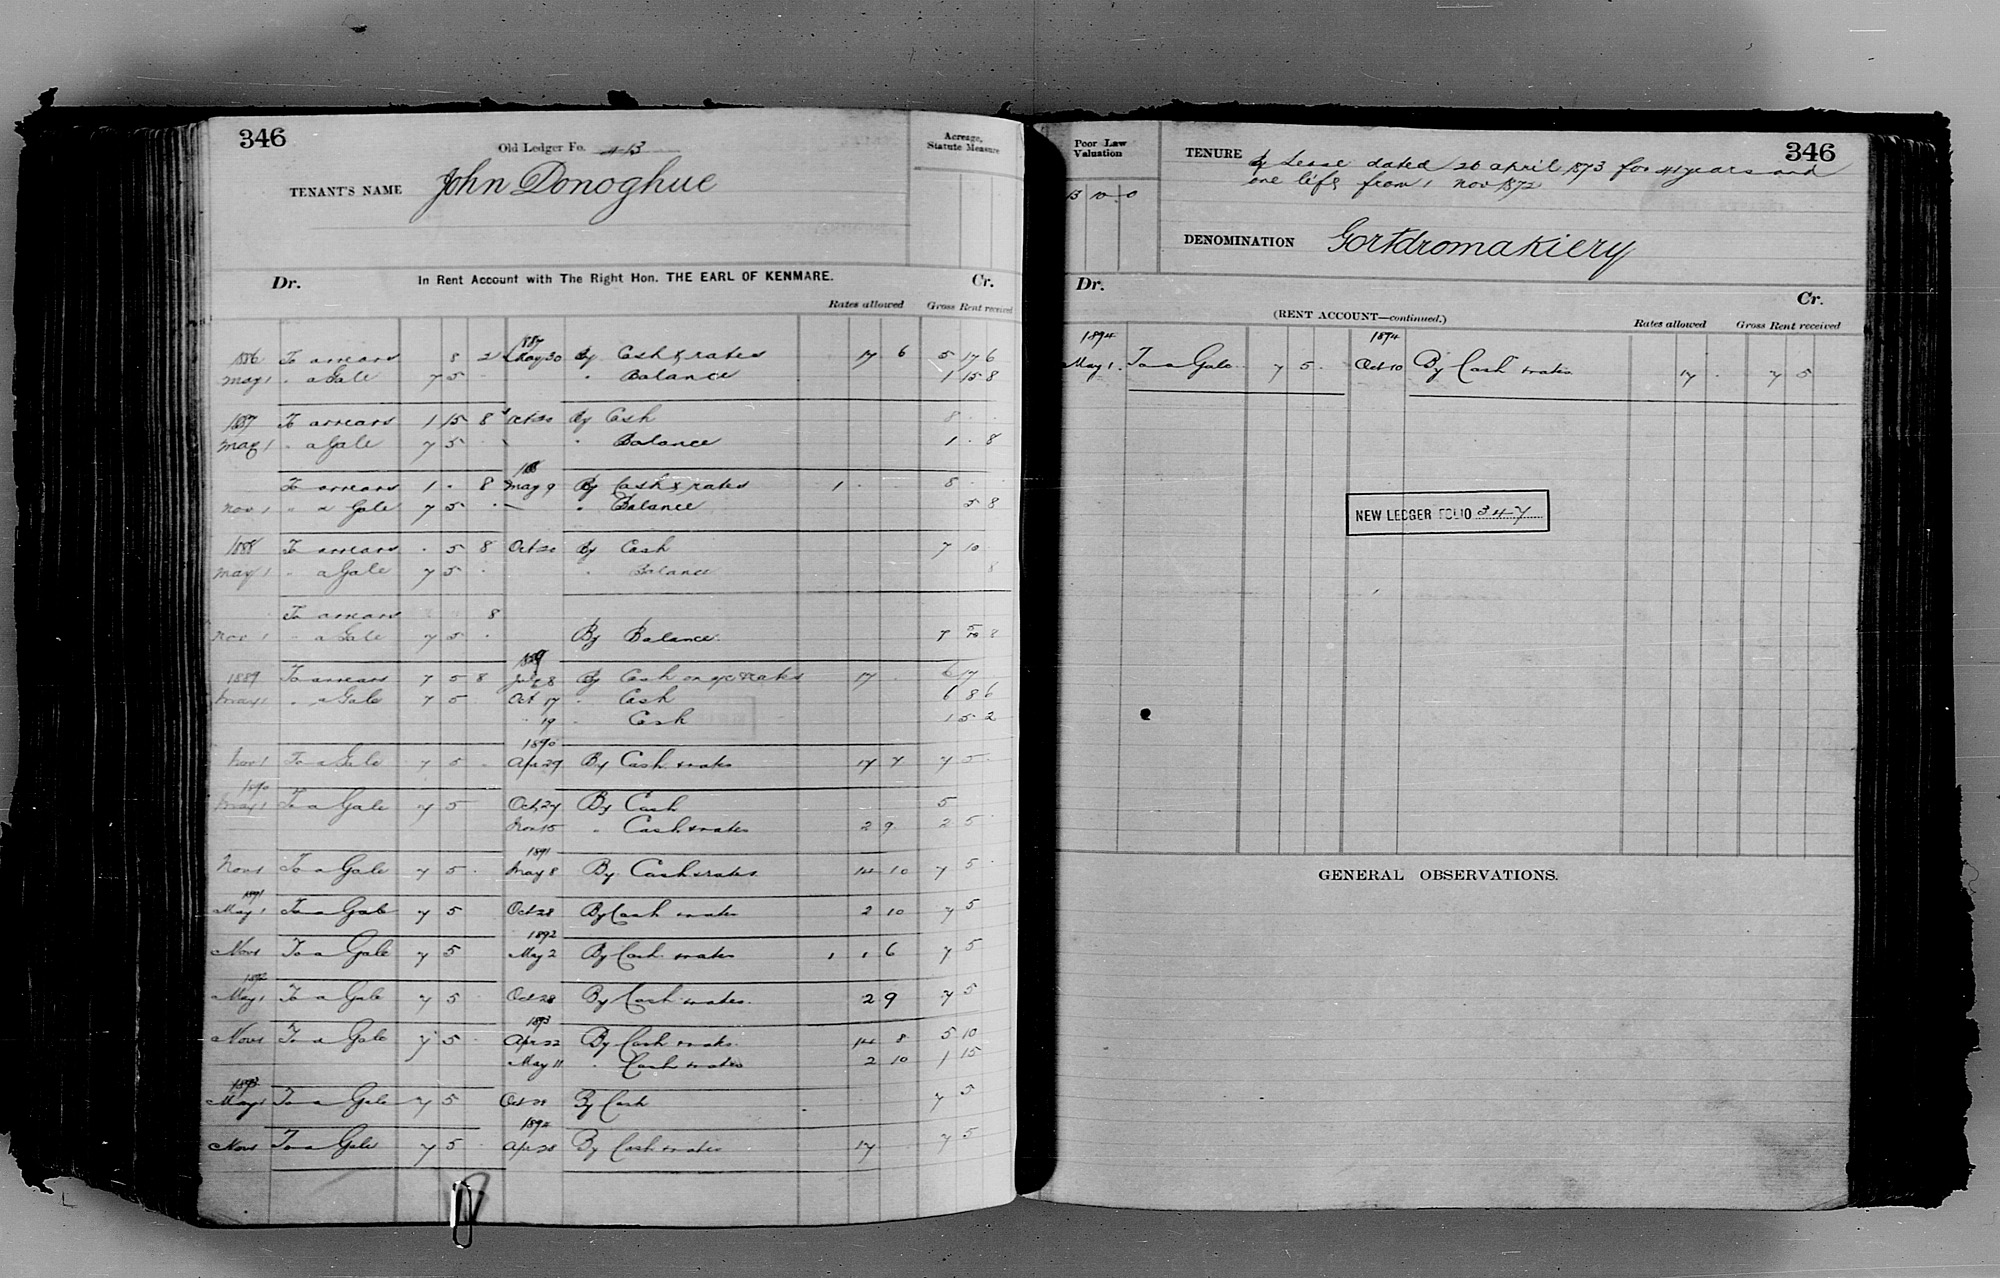 346
Old Ledger Fo. 413
Acreage, Statute Measure
TENANT'S NAME John Donoghue
In Rent Account with The Right Hon. THE EARL OF KENMARE.
Dr. Cr.
Rates allowed Gross Rent received
1887
1886 To arrears 8 2 May 30 By Cash & rates 17 6 5 17 6
May 1 " a Gale 7 5 - " Balance 1 15 8
1887 To arrears 1 15 8 Oct 20 By Cash 8 - -
May 1 " a Gale 7 5 - " Balance 1 - 8
1888
To arrears 1 - 8 May 9 By Cash & rates 1 - 8 - -
Nov 1 " a Gale 7 5 - " Balance 5 8
1888 To arrears - 5 8 Oct 20 By Cash 7 10
May 1 " a Gale 7 5 - " Balance 8
To arrears 8
Nov 1 " a Gale 7 5 - By Balance 7 5 8
1889
1889 To arrears 7 5 8 By Cash on a/c & rates 17 - 6 17
May 1 " a Gale 7 5 Oct 17 " Cash 6 8 6
" 19 " Cash 1 5 2
1890
Nov 1 To a Gale 7 5 - Apr 29 By Cash & rates 17 7 7 5 -
1890
May 1 To a Gale 7 5 Oct 27 By Cash 5
Nov 15 " Cash & rates 2 9 2 5
1891
Nov 1 To a Gale 7 5 - May 8 By Cash & rates 14 10 7 5 -
1891
May 1 To a Gale 7 5 Oct 28 By Cash & rates 2 10 7 5
1892
Nov 1 To a Gale 7 5 May 2 By Cash & rates 1 1 6 7 5
1892
May 1 To a Gale 7 5 - Oct 28 By Cash & rates 2 9 7 5
1893
Nov 1 To a Gale 7 5 - Apr 22 By Cash & rates 14 8 5 10
May 11 " Cash & rates 2 10 1 15
1893
May 1 To a Gale 7 5 Oct By Cash 7 5
1894
Nov 1 To a Gale 7 5 - Apr 28 By Cash & rates 17 7 5
346
Poor Law Valuation
13 10 0
TENURE By Lease dated 26 april 1873 for 41 years and
one life from 1 Nov 1872
DENOMINATION Gortdromakiery
Dr. Cr.
(RENT ACCOUNT—continued.)
Rates allowed Gross Rent received
1894 1894
May 1. To a Gale 7 5 - Oct 10 By Cash & rates 17 - 7 5
NEW LEDGER FOLIO 347
GENERAL OBSERVATIONS.